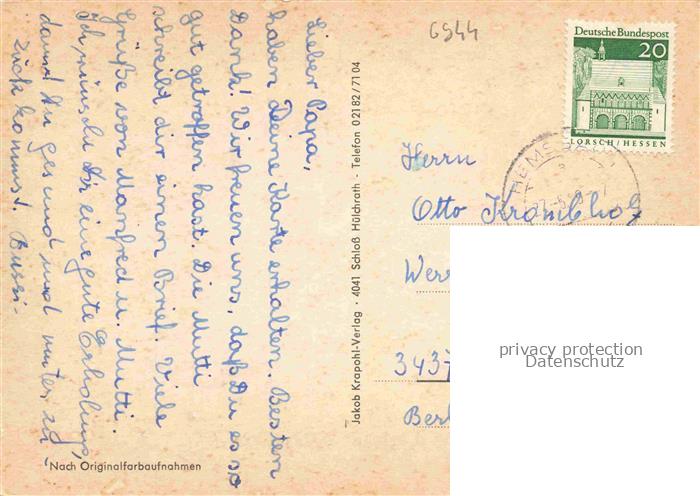 Lieber Papa,
haben Deine Karte erhalten. Besten
Dank! Wir freuen uns, daß Du es so
gut getroffen hast. Die Mutti
schreibt dir einen Brief. Viele
Grüße von Manfred u. Mutti.
Ich wünsche Dir eine gute Erholung,
damit Du gesund und munter zu
rück kommst. Bussi-
Nach Originalfarbaufnahmen
Jakob Krapohl-Verlag · 4041 Schloß Hülchrath · Telefon 02182/7104
6944
Deutsche Bundespost
20
LORSCH/HESSEN
HEMS
Herrn
Otto Krombholz
Wer
3437
Ber
privacy protection
Datenschutz